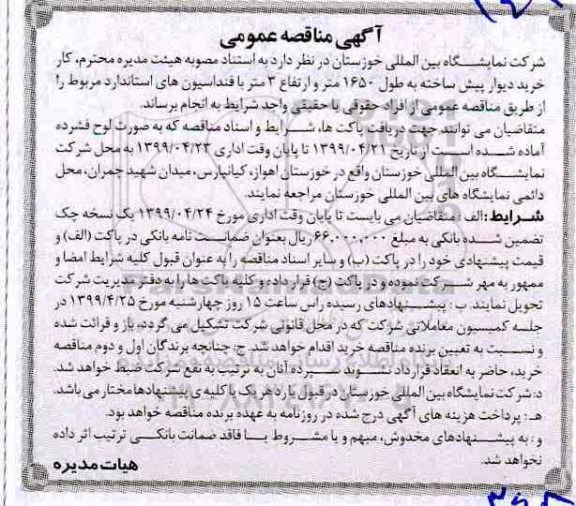 آگهی مناقصه عمومی
شرکت نمایشگاه بین المللی خوزستان در نظر دارد به استناد مصوبه هیئت مدیره محترم، کار
خرید دیوار پیش ساخته به طول ۱۶۵۰ متر و ارتفاع ۳ متر با فنداسیون های استاندارد مربوط را
از طریق مناقصه عمومی از افراد حقوقی یا حقیقی واجد شرایط به انجام برساند.
متقاضیان می توانند جهت دریافت پاکت ها، شرایط و اسناد مناقصه که به صورت لوح فشرده
آماده شده است از تاریخ ۱۳۹۹/۰۴/۲۱ تا پایان وقت اداری ۱۳۹۹/۰۴/۲۳ به محل شرکت
نمایشگاه بین المللی خوزستان واقع در خوزستان اهواز، کیانپارس، میدان شهید چمران، محل
دائمی نمایشگاه های بین المللی خوزستان مراجعه نمایند.
شرایط: الف: متقاضیان می بایست تا پایان وقت اداری مورخ ۱۳۹۹/۰۴/۲۴ یک نسخه چک
تضمین شده بانکی به مبلغ ۶۶.۰۰۰.۰۰۰ ریال بعنوان ضمانت نامه بانکی در پاکت (الف) و
قیمت پیشنهادی خود را در پاکت (ب) و سایر اسناد مناقصه را به عنوان قبول کلیه شرایط امضا و
ممهور به مهر شرکت نموده و در پاکت (ج) قرار داده و کلیه پاکت ها را به دفتر مدیریت شرکت
تحویل نمایند. ب: پیشنهادهای رسیده راس ساعت ۱۵ روز چهارشنبه مورخ ۱۳۹۹/۴/۲۵ در
جلسه کمیسیون معاملاتی شرکت که در محل قانونی شرکت تشکیل می گردد، باز و قرائت شده
و نسبت به تعیین برنده مناقصه خرید اقدام خواهد شد. ج: چنانچه برندگان اول و دوم مناقصه
خرید، حاضر به انعقاد قرارداد نشوند سپرده آنان به ترتیب به نفع شرکت ضبط خواهد شد.
د: شرکت نمایشگاه بین المللی خوزستان در قبول یا رد هریک یا کلیه ی پیشنهادها مختار می باشد.
هـ: پرداخت هزینه های آگهی درج شده در روزنامه به عهده برنده مناقصه خواهد بود.
و: به پیشنهادهای مخدوش، مبهم و یا مشروط یا فاقد ضمانت بانکی ترتیب اثر داده
نخواهد شد.
هیات مدیره